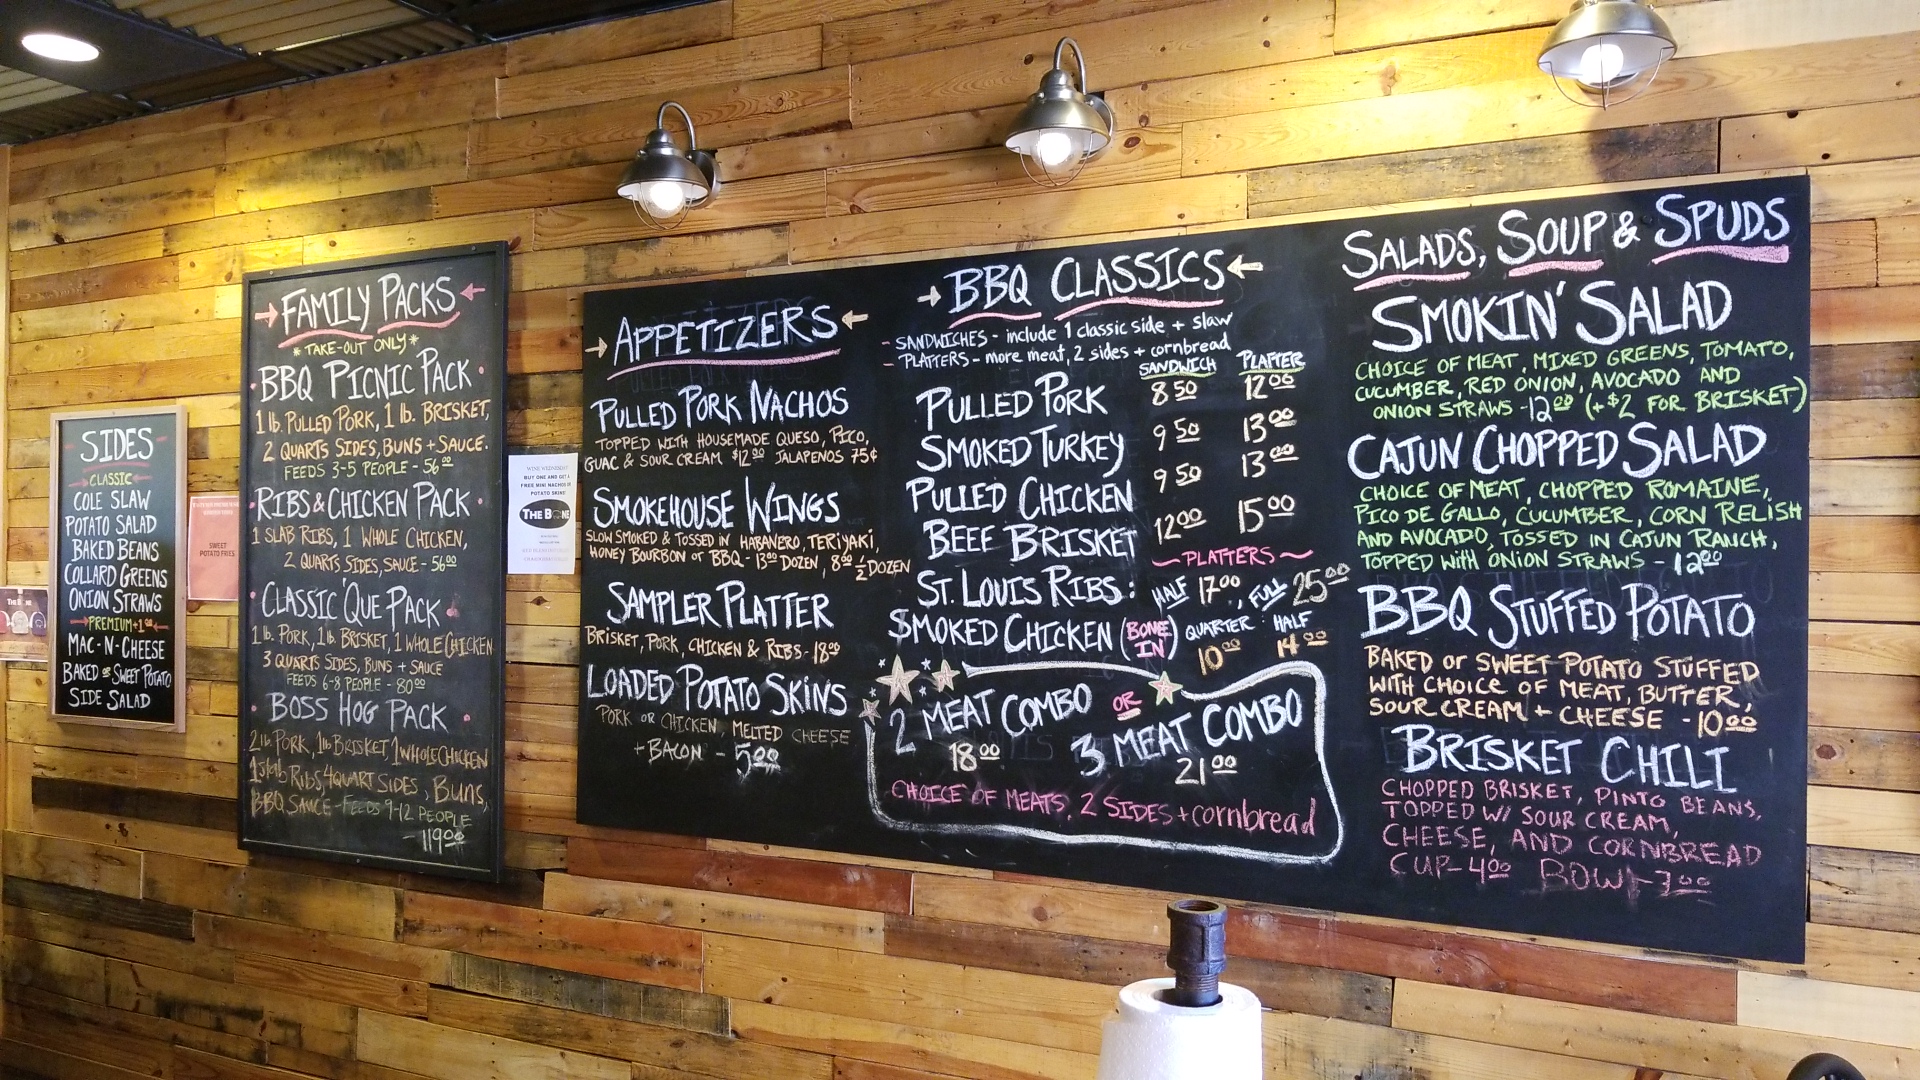 SIDES
CLASSIC
COLE SLAW
POTATO SALAD
BAKED BEANS
COLLARD GREENS
ONION STRAWS
PREMIUM +1.00
MAC-N-CHEESE
BAKED OR SWEET POTATO
SIDE SALAD
THE BONE
SWEET
POTATO FRIES
FAMILY PACKS
*TAKE-OUT ONLY*
BBQ PICNIC PACK
1 lb. PULLED PORK, 1 lb. BRISKET,
2 QUARTS SIDES, BUNS + SAUCE.
FEEDS 3-5 PEOPLE - 56 00
RIBS & CHICKEN PACK
1 SLAB RIBS, 1 WHOLE CHICKEN,
2 QUARTS SIDES, SAUCE - 56 00
CLASSIC 'QUE PACK
1 lb. PORK, 1 lb. BRISKET, 1 WHOLE CHICKEN
3 QUARTS SIDES, BUNS + SAUCE
FEEDS 6-8 PEOPLE - 80 00
BOSS HOG PACK
2 lb PORK, 1 lb BRISKET, 1 WHOLE CHICKEN
1 slab RIBS, 4 QUART SIDES, BUNS,
BBQ SAUCE - FEEDS 9-12 PEOPLE
- 119 00
WINE WEDNESDAY
BUY ONE AND GET A
FREE MINI NACHOS OR
POTATO SKINS
THE BONE
APPETIZERS
PULLED PORK NACHOS
TOPPED WITH HOUSEMADE QUESO, PICO,
GUAC & SOUR CREAM $12 00 JALAPENOS 75¢
SMOKEHOUSE WINGS
SLOW SMOKED & TOSSED IN HABANERO, TERIYAKI,
HONEY BOURBON OR BBQ - 13 00 DOZEN, 8 00 1/2 DOZEN
SAMPLER PLATTER
BRISKET, PORK, CHICKEN & RIBS - 18 00
LOADED POTATO SKINS
PORK OR CHICKEN, MELTED CHEESE
+ BACON - 5 00
BBQ CLASSICS
- SANDWICHES - include 1 classic side + slaw
- PLATTERS - more meat, 2 sides + cornbread
SANDWICH PLATTER
PULLED PORK 8 50 12 00
SMOKED TURKEY 9 50 13 00
PULLED CHICKEN 9 50 13 00
BEEF BRISKET 12 00 15 00
~ PLATTERS ~
ST. LOUIS RIBS: HALF 17 00, FULL 25 00
SMOKED CHICKEN (BONE IN) QUARTER: HALF
10 00 14 00
2 MEAT COMBO OR 3 MEAT COMBO
18 00 21 00
CHOICE OF MEATS, 2 SIDES + cornbread
SALADS, SOUP & SPUDS
SMOKIN' SALAD
CHOICE OF MEAT, MIXED GREENS, TOMATO,
CUCUMBER, RED ONION, AVOCADO AND
ONION STRAWS - 12 00 (+$2 FOR BRISKET)
CAJUN CHOPPED SALAD
CHOICE OF MEAT, CHOPPED ROMAINE,
PICO DE GALLO, CUCUMBER, CORN RELISH
AND AVOCADO, TOSSED IN CAJUN RANCH,
TOPPED WITH ONION STRAWS - 12 00
BBQ STUFFED POTATO
BAKED OR SWEET POTATO STUFFED
WITH CHOICE OF MEAT, BUTTER,
SOUR CREAM + CHEESE - 10 00
BRISKET CHILI
CHOPPED BRISKET, PINTO BEANS,
TOPPED W/ SOUR CREAM,
CHEESE, AND CORNBREAD
CUP - 4 00 BOWL - 7 00